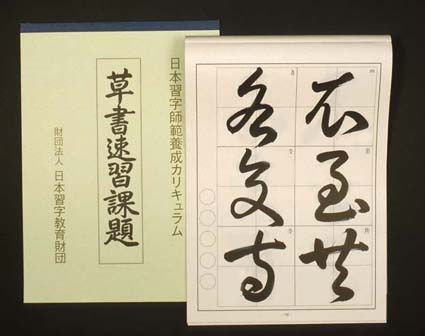 日本習字師範養成カリキュラム
草書速習課題
財団法人 日本習字教育財団
至共
各交